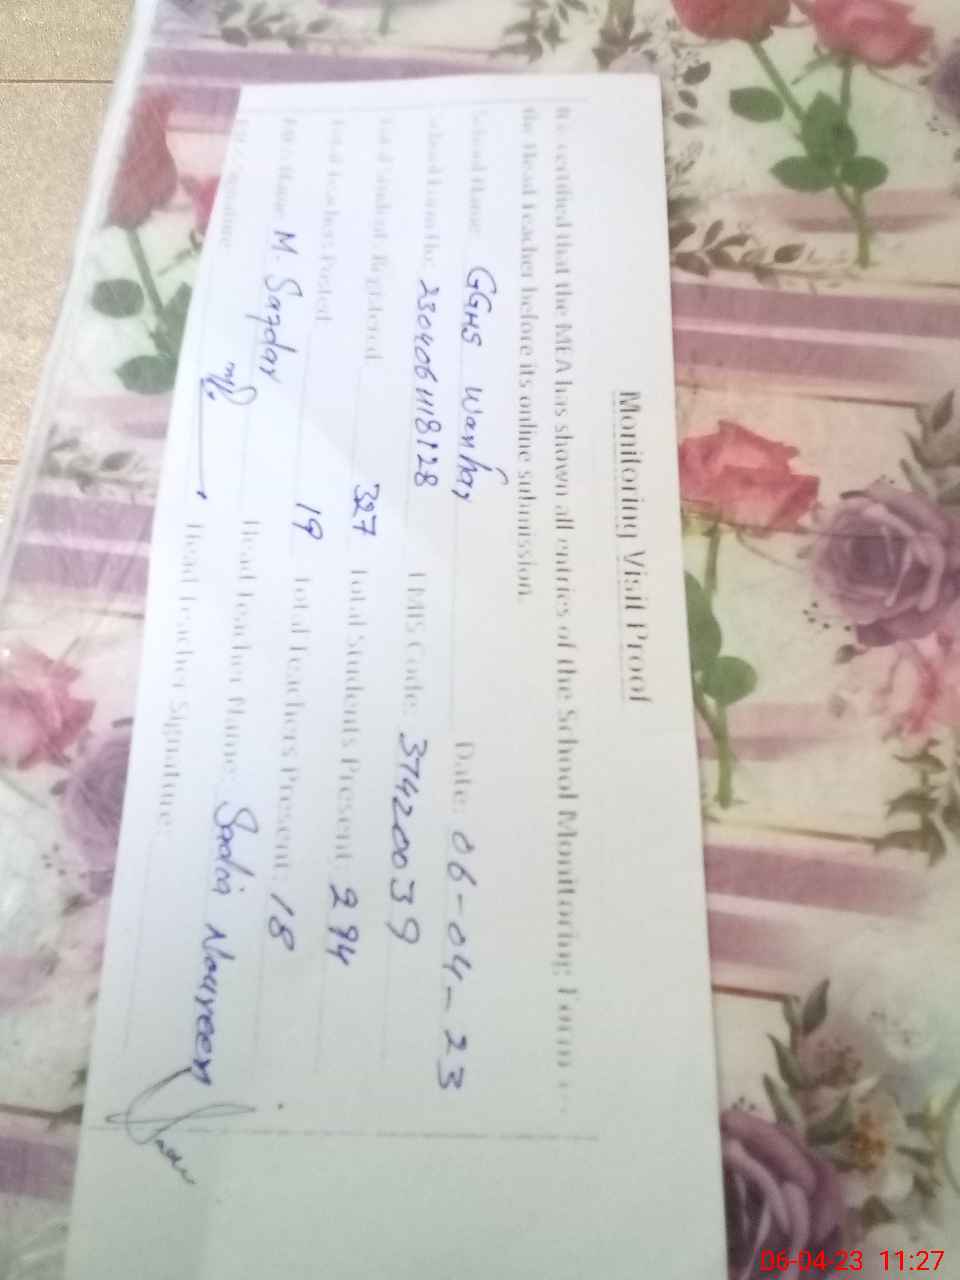 Monitoring Visit Proof
It is certified that the MEA has shown all entries of the School Monitoring Form
the Head Teacher before its online submission.
School Name: GGHS Date: 06-04-23
EMIS Code: 37420039
Total Students Registered 327 Total Students Present: 294
Total Teachers Posted 19 Total Teachers Present: 18
Name M. Head Teacher Name: Sadia Noureen
Signature Head Teacher Signature:
06-04-23 11:27